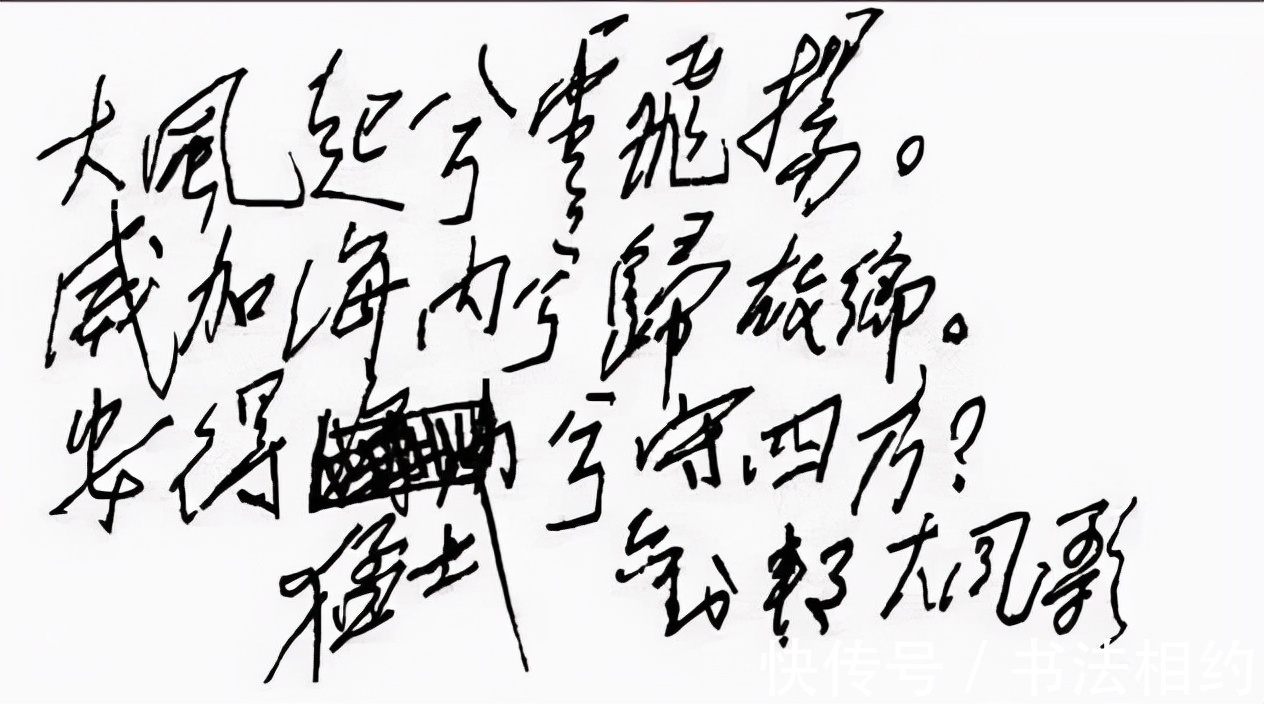 大風起兮雲飛揚。
威加海内兮歸故鄉。
安得兮守四方？
猛士
劉邦大风歌
快传号 / 书法相约